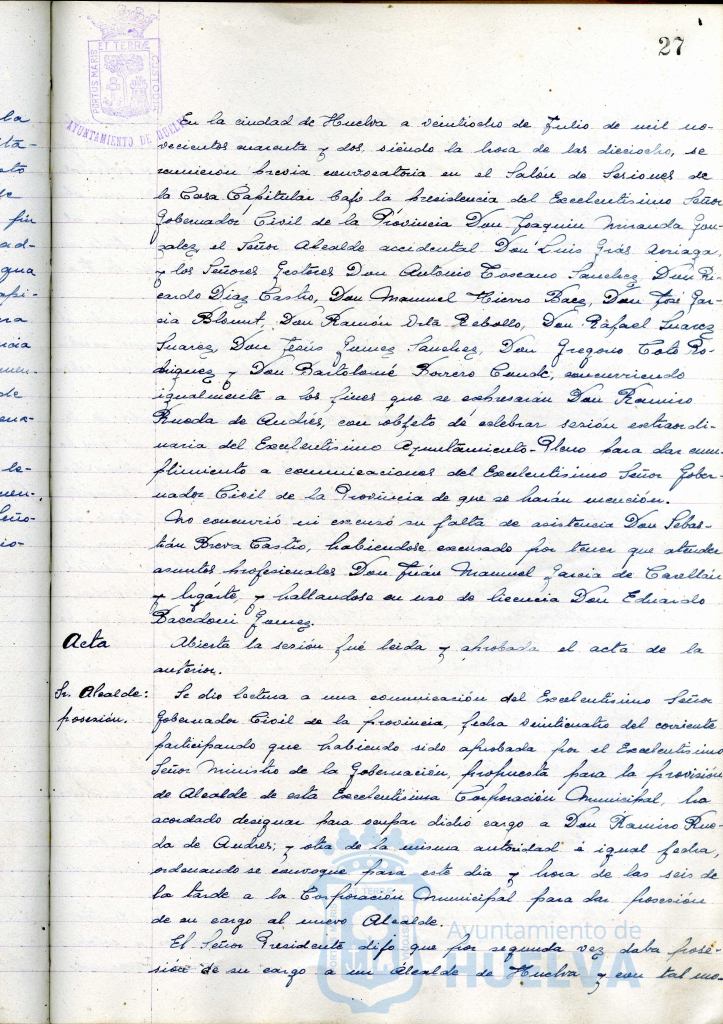 27
PORTUS MARIS ET TERRÆ CUSTODIA
AYUNTAMIENTO DE HUELVA
En la ciudad de Huelva a veintiocho de Julio de mil no-
vecientos cuarenta y dos, siendo la hora de las dieciocho, se
reunieron previa convocatoria en el Salón de Sesiones de
la Casa Capitular bajo la presidencia del Excelentísimo Señor
Gobernador Civil de la Provincia Don Joaquin Miranda Gon-
zalez, el Señor Alcalde accidental Don Luis Gras Arriaga,
y los Señores Gestores Don Antonio Toscano Sanchez, Don Ri-
cardo Diaz Castro, Don Manuel Hierro Baez, Don José Gar-
cia Blount, Don Ramón Orta Rebollo, Don Rafael Suarez
Suarez, Don Jesús Gomez Sanchez, Don Gregorio Coto Ro-
driguez y Don Bartolomé Borrero Conde, concurriendo
igualmente a los fines que se expresarán Don Ramiro
Rueda de Andrés, con objeto de celebrar sesión extraordi-
naria del Excelentísimo Ayuntamiento-Pleno para dar cum-
plimiento a comunicaciones del Excelentísimo Señor Gober-
nador Civil de la Provincia de que se harán mención.
No concurrió ni excusó su falta de asistencia Don Sebas-
tián Breva Castro, habiendose excusado por tener que atender
asuntos profesionales Don Juán Manuel Garcia de Casellán
y Ugarte, y hallandose en uso de licencia Don Eduardo
Gomez.
Acta
Abierta la sesión fué leida y aprobada el acta de la
anterior.
Sr. Alcalde:
posesión.
Se dio lectura a una comunicación del Excelentísimo Señor
Gobernador Civil de la provincia, fecha veinticuatro del corriente
participando que habiendo sido aprobada por el Excelentísimo
Señor Ministro de la Gobernación, propuesta para la provisión
de Alcalde de esta Excelentísima Corporación Municipal, ha
acordado designar para ocupar dicho cargo a Don Ramiro Rue-
da de Andrés; y otra de la misma autoridad é igual fecha,
ordenando se convoque para este dia y hora de las seis de
la tarde a la Corporación Municipal para dar posesión
de su cargo al nuevo Alcalde.
El Señor Presidente dijo que por segunda vez daba pose-
sión de su cargo a un Alcalde de Huelva y con tal mo-
Ayuntamiento de
HUELVA